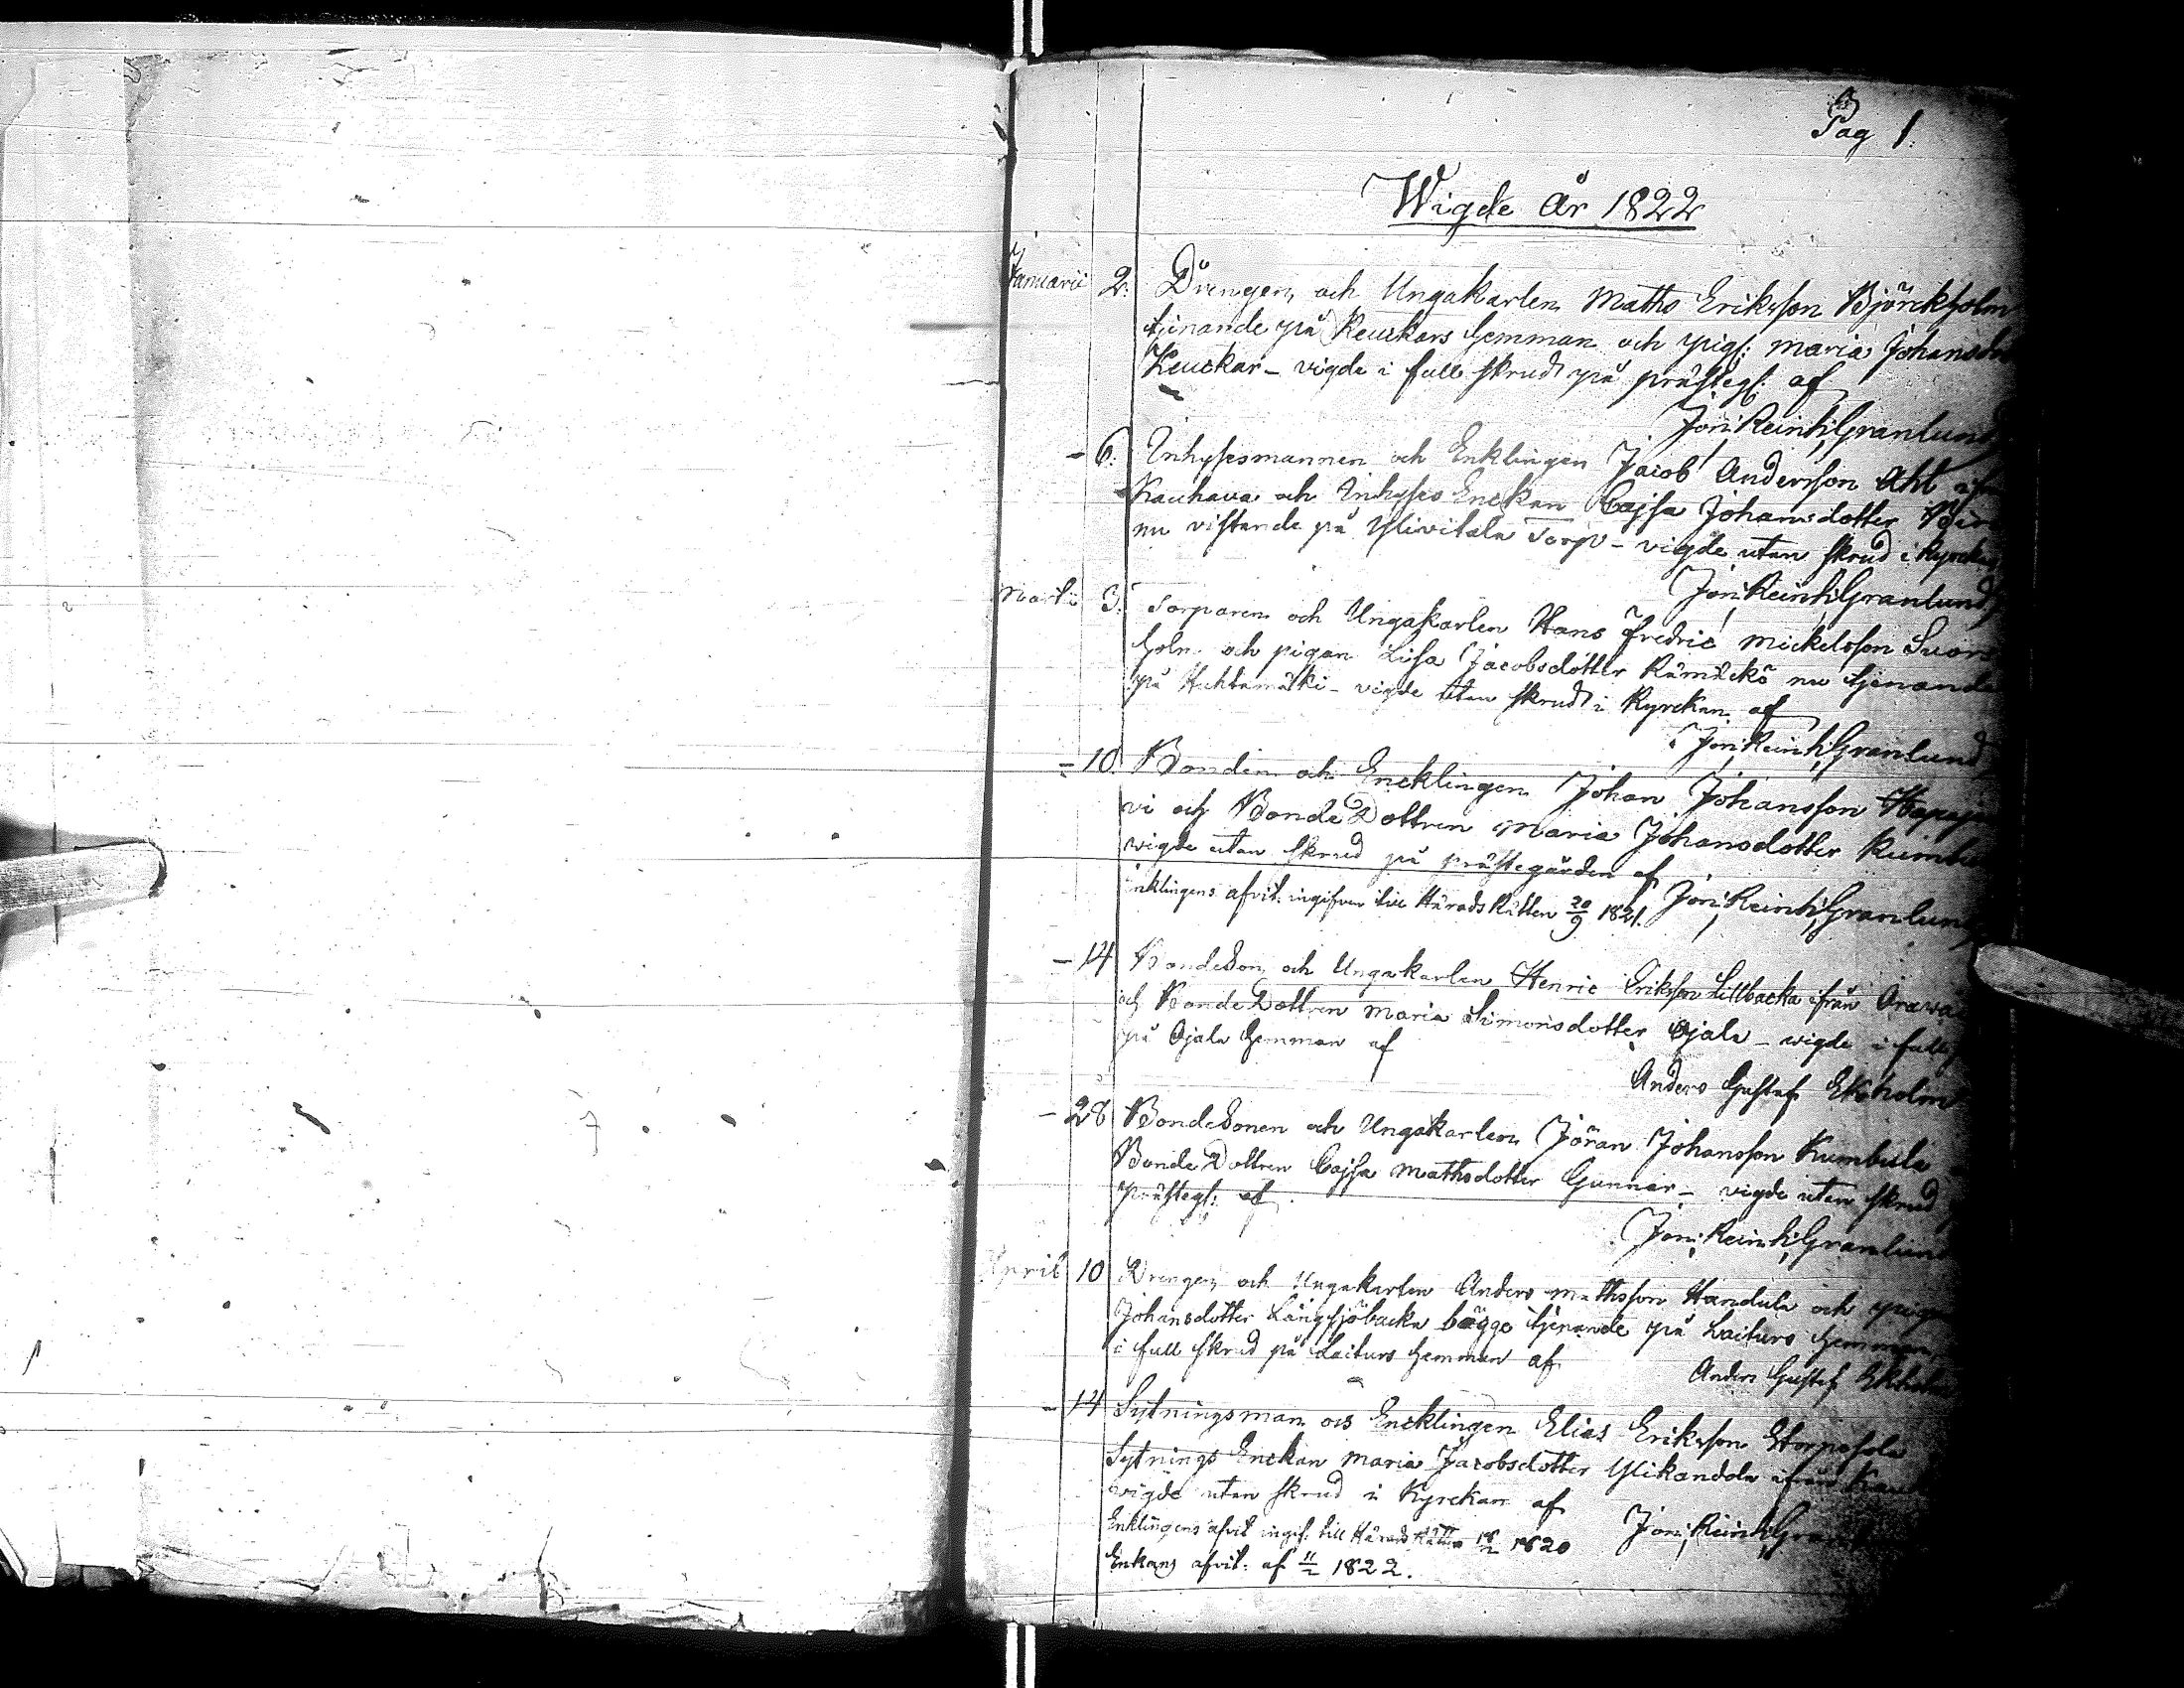 Pag 1.
Wigde År 1822
Januarii 2. Drängen och Ungakarlen Matts Eriksson Björckholm
tjenande på Keuckars hemman och pig: Maria Johansdot
Keuckar - vigde i full skrud på prästeg: af
Jon: Reinh: Granlund
- 6. Inhysesmannen och Enklingen Jacob Andersson Ahl
Kauhava och Inhyses Enckan Cajsa Johansdotter
nu vistande på Ylivitala Torp - vigde utan skrud i kyrckan
Jon: Reinh: Granlund
Marti 3. Torparen och Ungakarlen Hans Fredric Mickelsson
holm och pigan Lisa Jacobsdotter Rämäckö nu tjenande
på Huhtamäki - vigde utan skrud i Kyrckan af
Jon: Reinh: Granlund
- 10. Bonden och Encklingen Johan Johansson
vi och BondeDottren Maria Johansdotter
wigde utan skrud på prästegården af
Enklingens afvit: ingifven till HäradsRätten 20/9 1821. Jon: Reinh: Granlund
- 14 BondeSon och Ungakarlen Henric Eriksson Lillbacka ifrån
och BondeDottren Maria Simonsdotter Ojala - wigde i full
på Ojala hemman af
Anders Gustaf Ekholm
- 28 BondeSonen och Ungakarlen Jöran Johansson Kumbula
BondeDottren Cajsa Mathsdotter Gunnar - vigde utan skrud
prästeg: af
Jon: Reinh: Granlund
April 10 Drängen och Ungakarlen Anders Mathsson Handula och pigan
Johansdotter Långsjöbacka bägge tjenande på Laiturs hemman,
i full skrud på Laiturs hemman af
Anders Gustaf Ekholm
- 14 Sytningsman och Encklingen Elias Eriksson
Sytnings Enckan Maria Jacobsdotter Ylikandola ifrån
vigde utan skrud i Kyrckan af
Jon: Reinh:
Enklingens afvit ingif: till HäradsRätten 1820
Enkans afvit: af 11/2 1822.